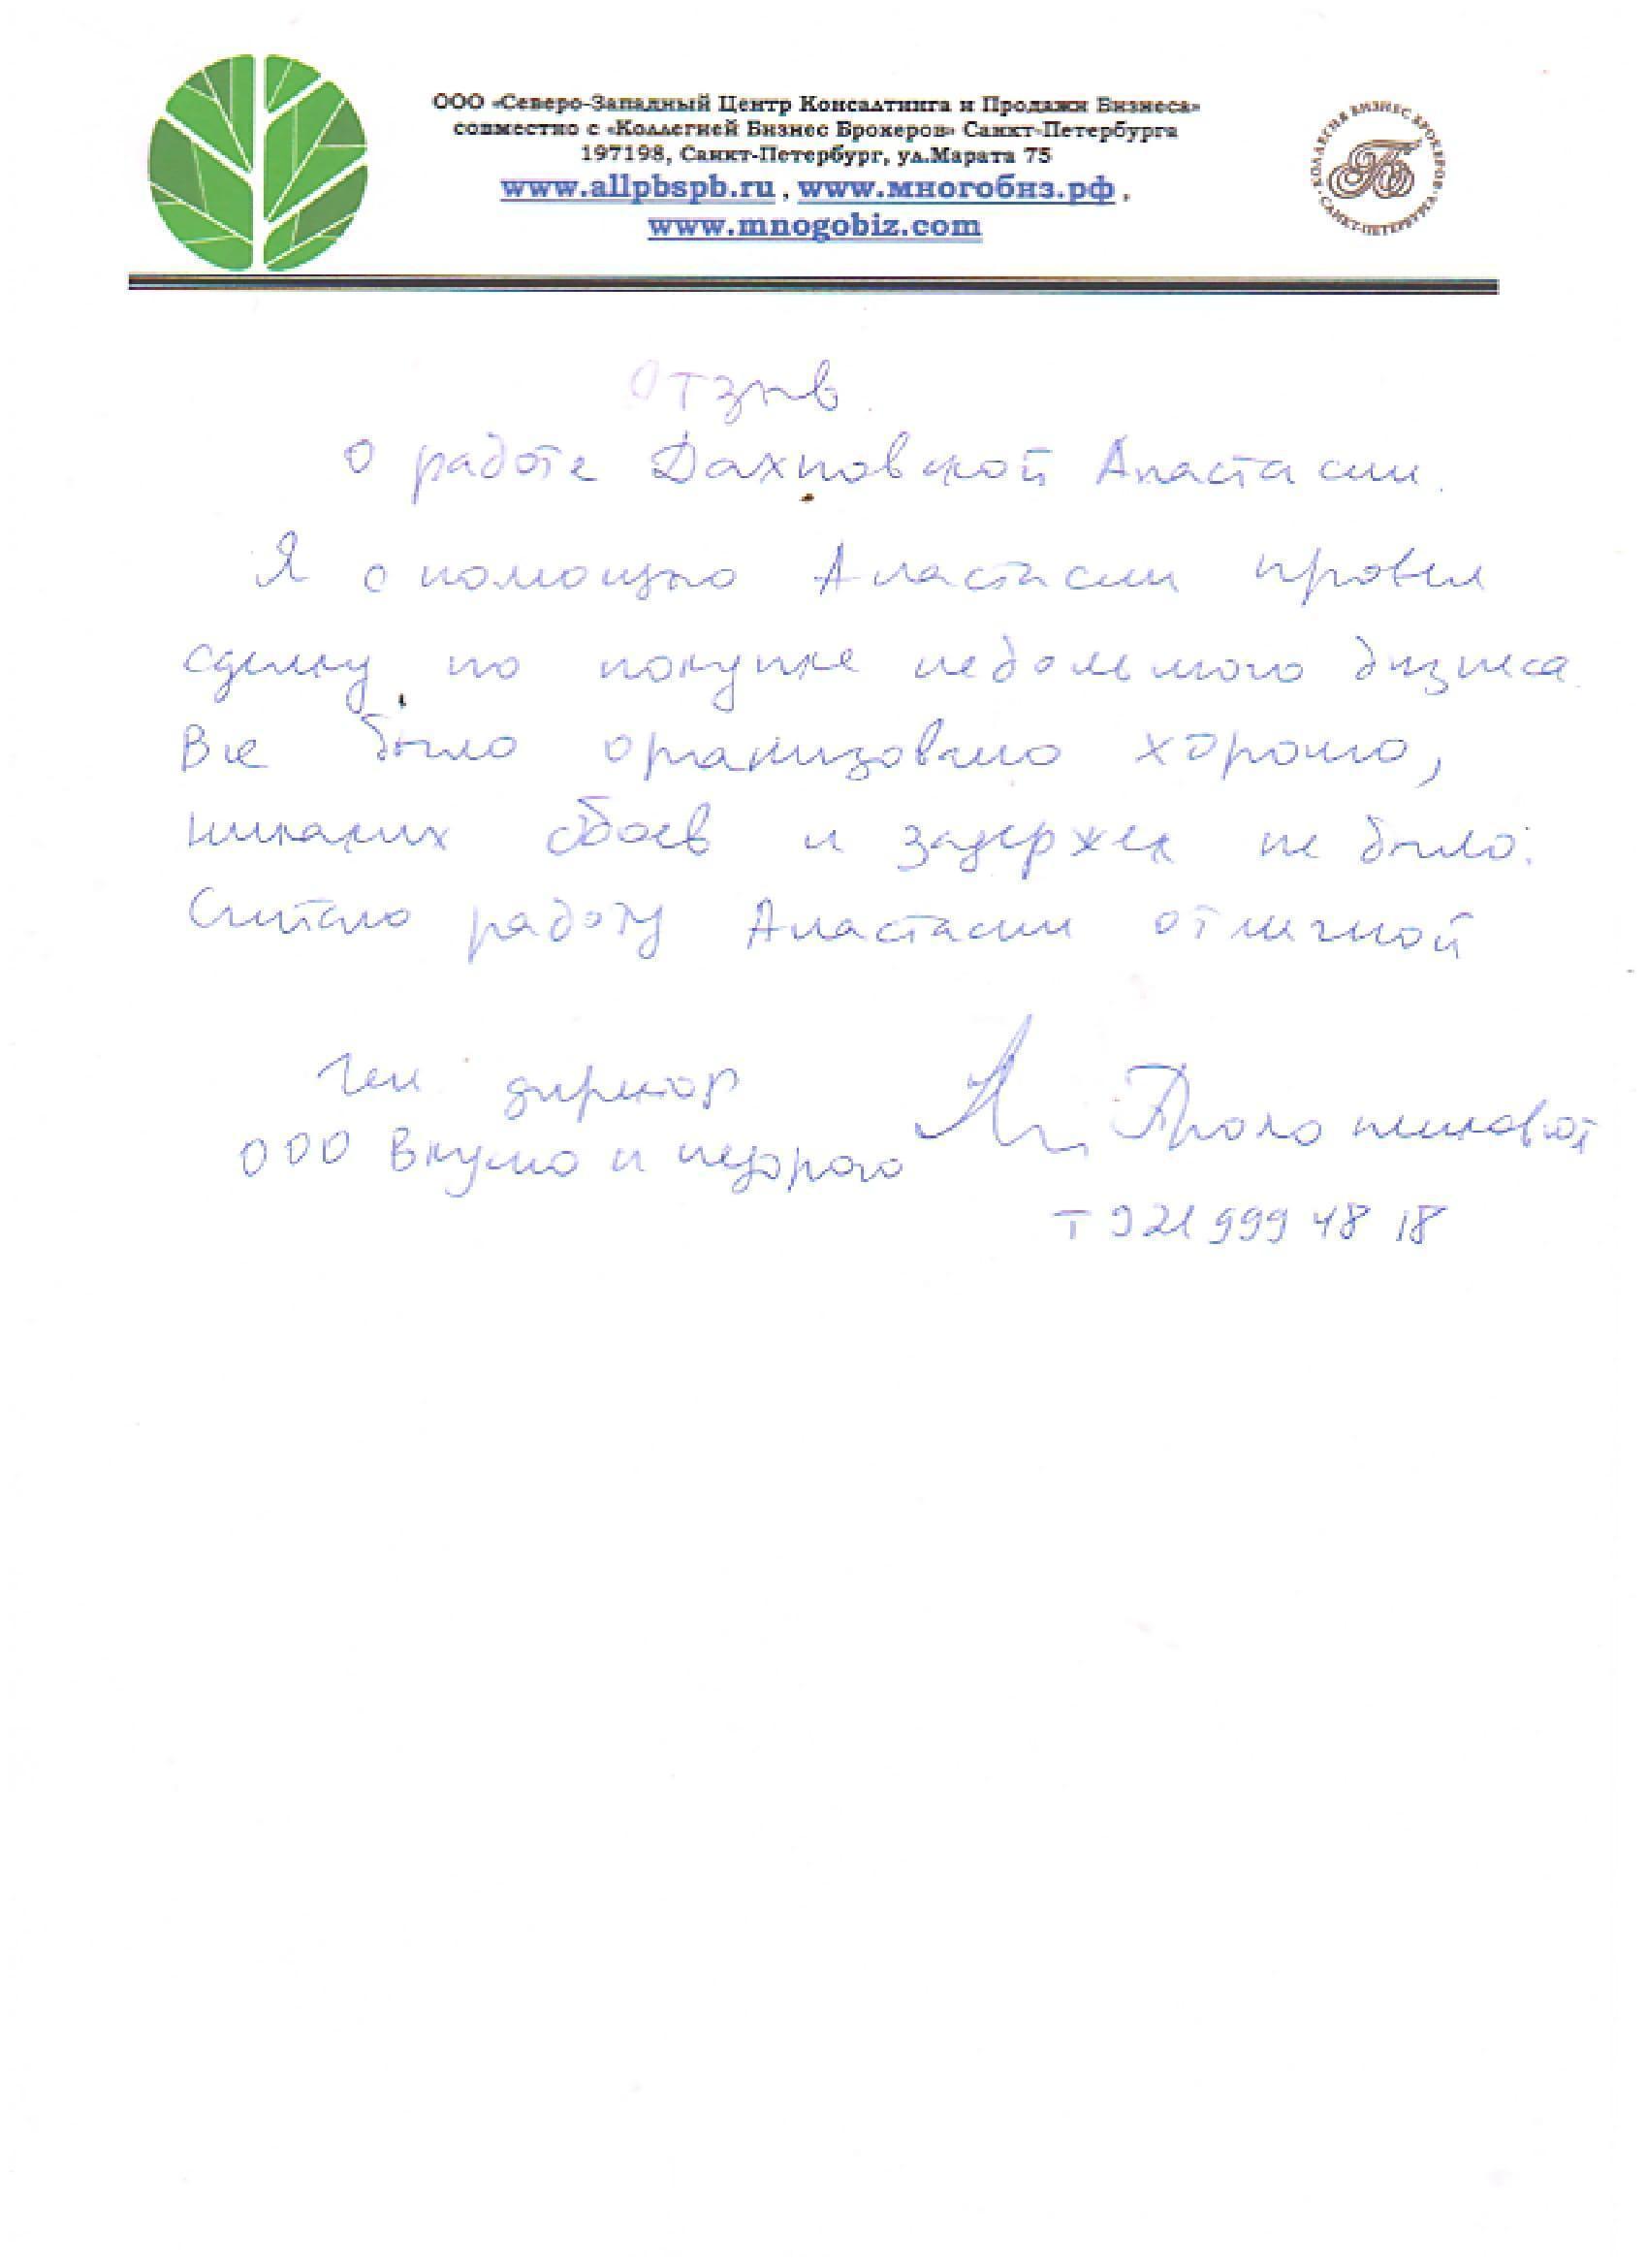 ООО «Северо-Западный Центр Консалтинга и Продажи Бизнеса»
совместно с «Коллегией Бизнес Брокеров» Санкт-Петербурга
197198, Санкт-Петербург, ул.Марата 75
www.allpbspb.ru , www.многобиз.рф ,
www.mnogobiz.com
КОЛЛЕГИЯ БИЗНЕС БРОКЕРОВ
САНКТ-ПЕТЕРБУРГА
Отзыв
О работе Дахновской Анастасии.
Я с помощью Анастасии провел
сделку по покупке небольшого бизнеса.
Все было организовано хорошо,
никаких сбоев и задержек не было.
Считаю работу Анастасии отличной
Ген директор
ООО Вкусно и недорого
т 921 999 48 18